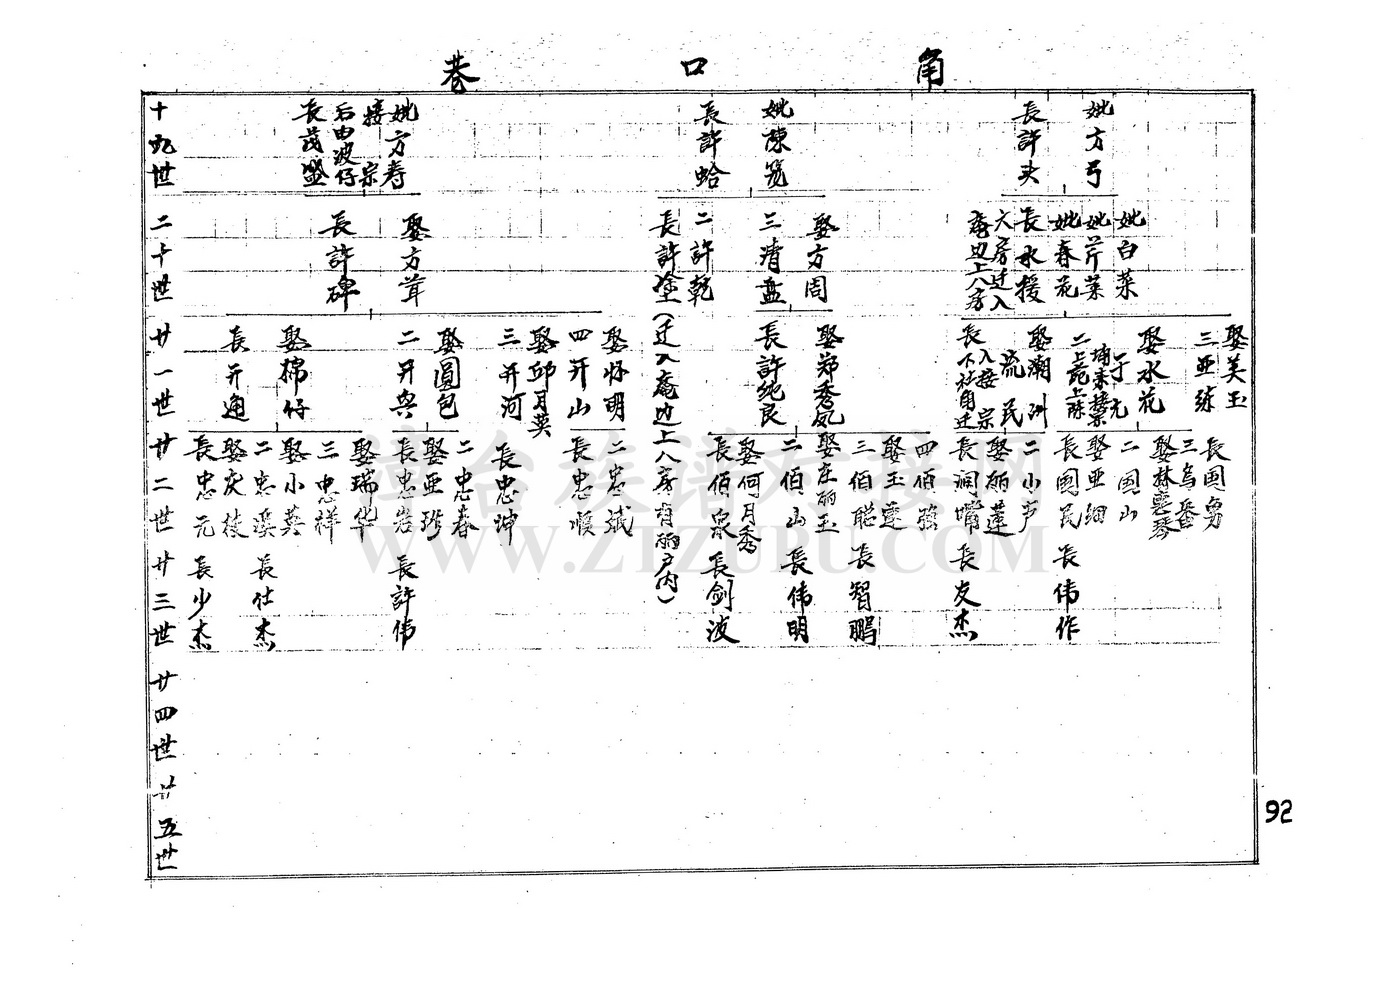 巷口角
十九世
長茂盛
后由波仔
接宗
妣方寿
長許蛤
妣陳笼
長許头
妣方弓
二十世
長許碑
娶方茸
長許塗(迁入庵边上八房有丽户内)
二許乾
三清盖
娶方周
庵边上八房
六房迁入
長水援
妣春花
妣芹菜
妣白菜
廿一世
長开通
娶棉仔
二开兴
娶圆包
三开河
娶邱月英
四开山
娶怀明
長許純良
娶郑秀凤
長流民
入接宗
娶潮洲
娶水花
三亚練
娶美玉
廿二世
長忠元
娶庆枝
二忠溪
娶小英
三忠祥
娶瑞华
長忠岩
娶亚珍
二忠春
長忠坤
長忠順
二忠斌
長佰泉
娶何月秀
二佰山
娶庄丽玉
三佰聪
娶玉莲
四佰強
長润嘴
娶丽莲
二小声
長国民
娶亚细
二国山
娶林惠琴
三乌番
長国勇
廿三世
長少杰
長仕杰
長許伟
長剑波
長伟明
長智鹏
長友杰
長伟作
廿四世
廿五世
92
族谱对接网
WWW.ZTZUPU.COM